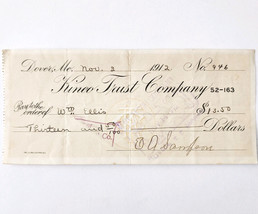 Dover, Mo. Nov. 2 1912 No. 446
Kinco Trust Company 52-163
Pay to the order of Wm Ellis $13.50
Thirteen and 50/100 Dollars
D A Sampson